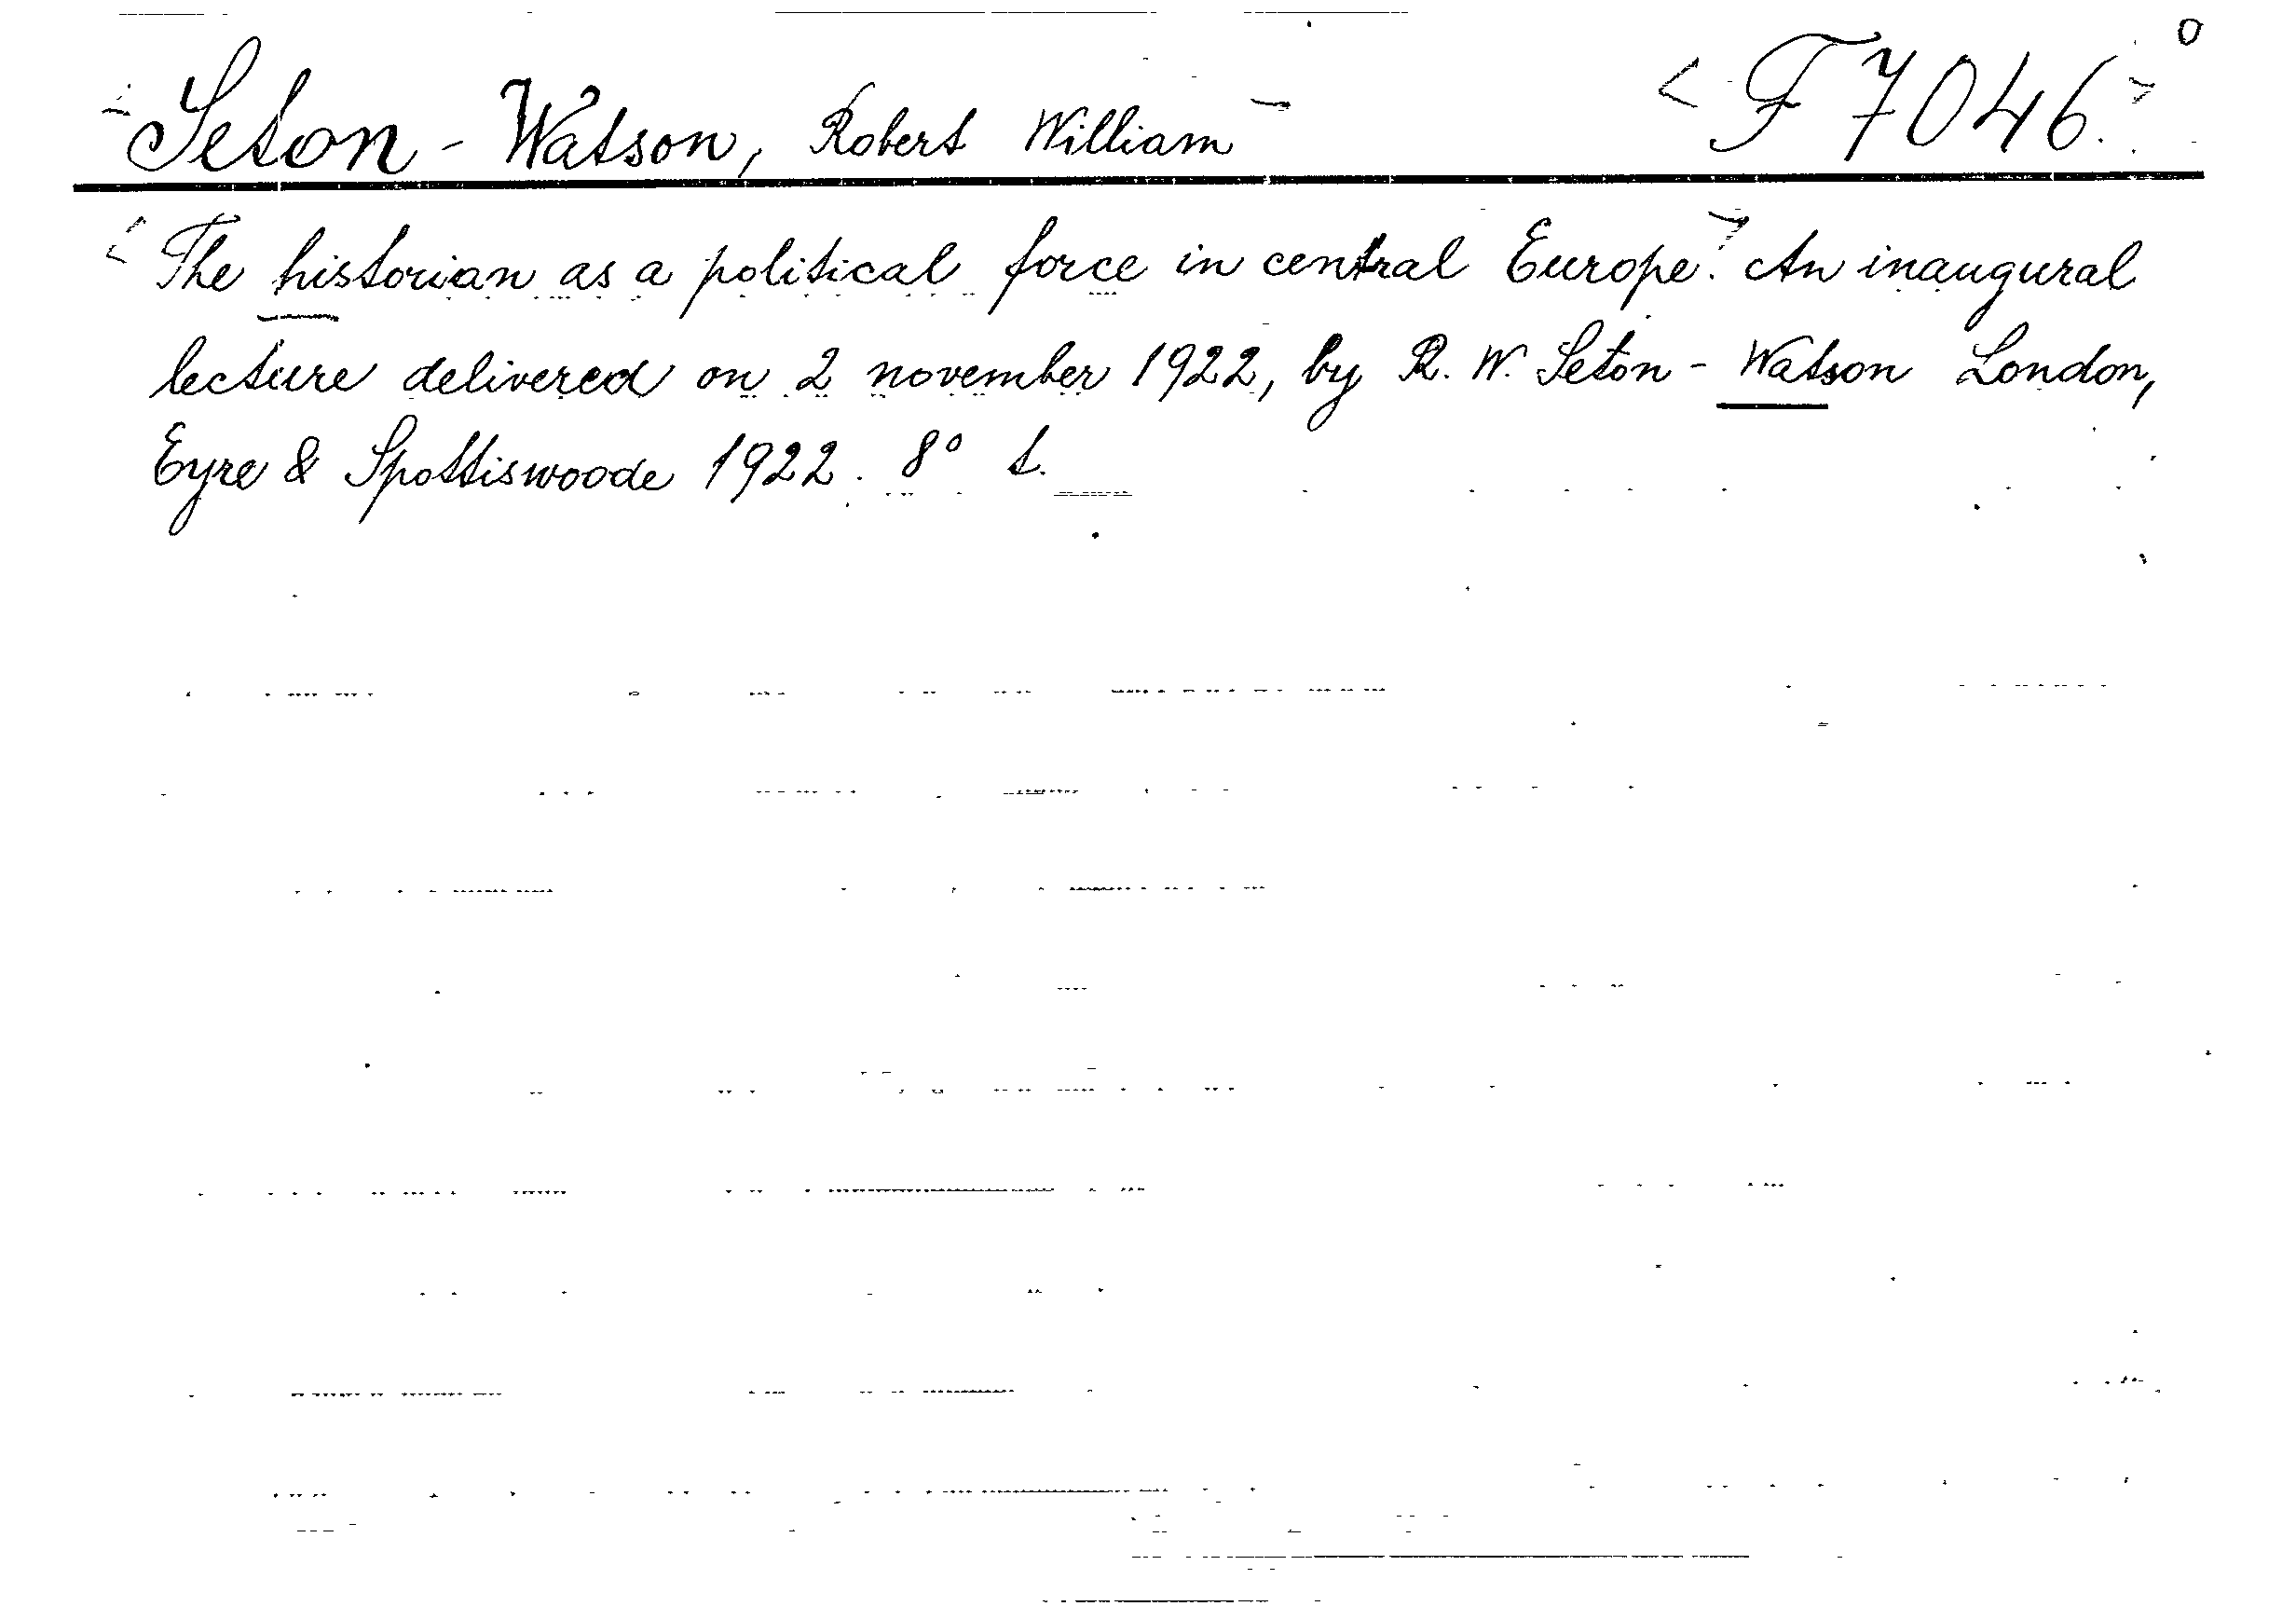 Seton - Watson, Robert William <F 7046.> o
<The historian as a political force in central Europe.> An inaugural
lecture delivered on 2 november 1922, by R. W. Seton - Watson London,
Eyre & Spottiswoode 1922. 8° t.